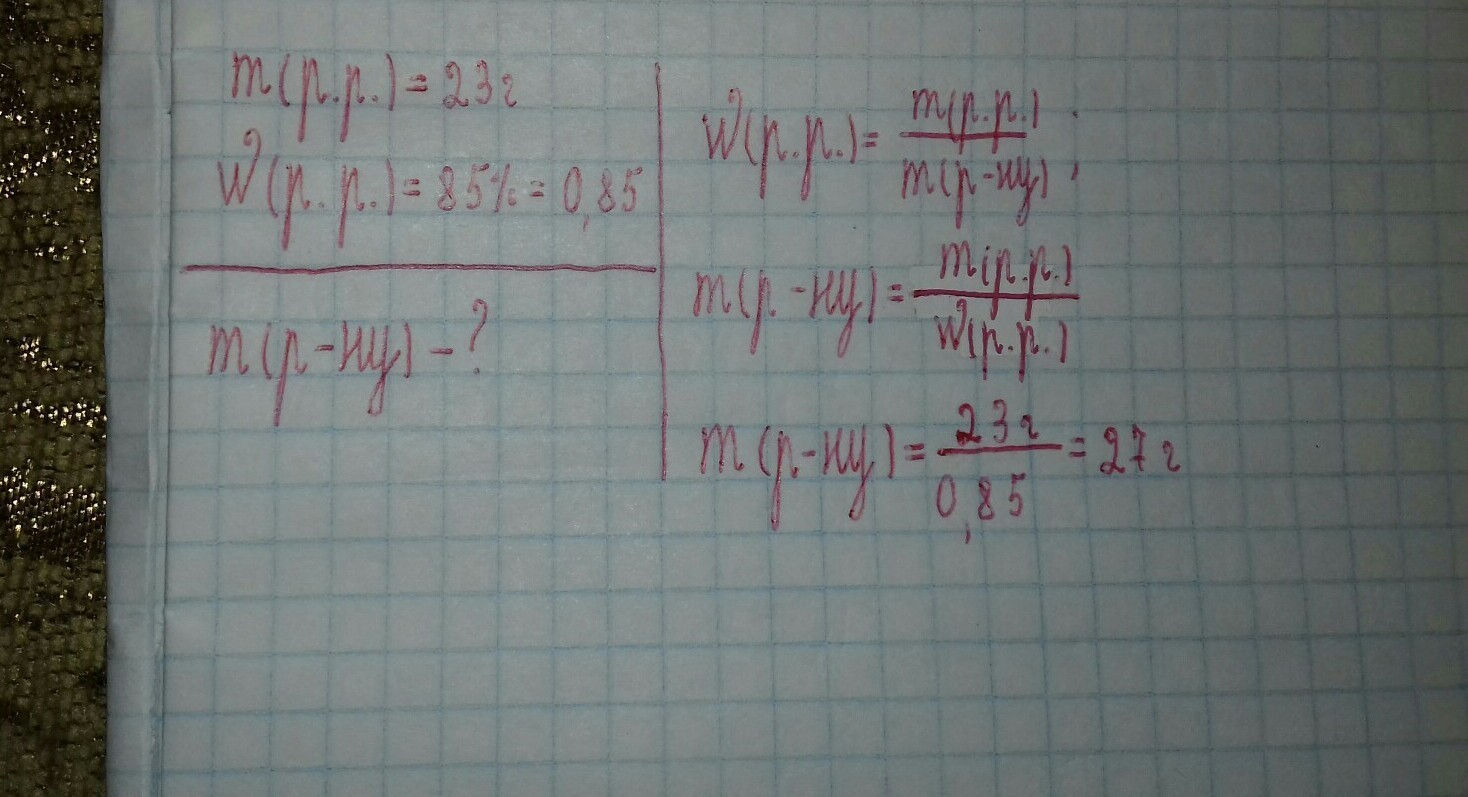 m(р.р.) = 23г
W(р.р.) = 85% = 0,85
m(р-ну) - ?
W(р.р.) = m(р.р.) / m(р-ну) ;
m(р-ну) = m(р.р.) / W(р.р.)
m(р-ну) = 23г / 0,85 = 27г